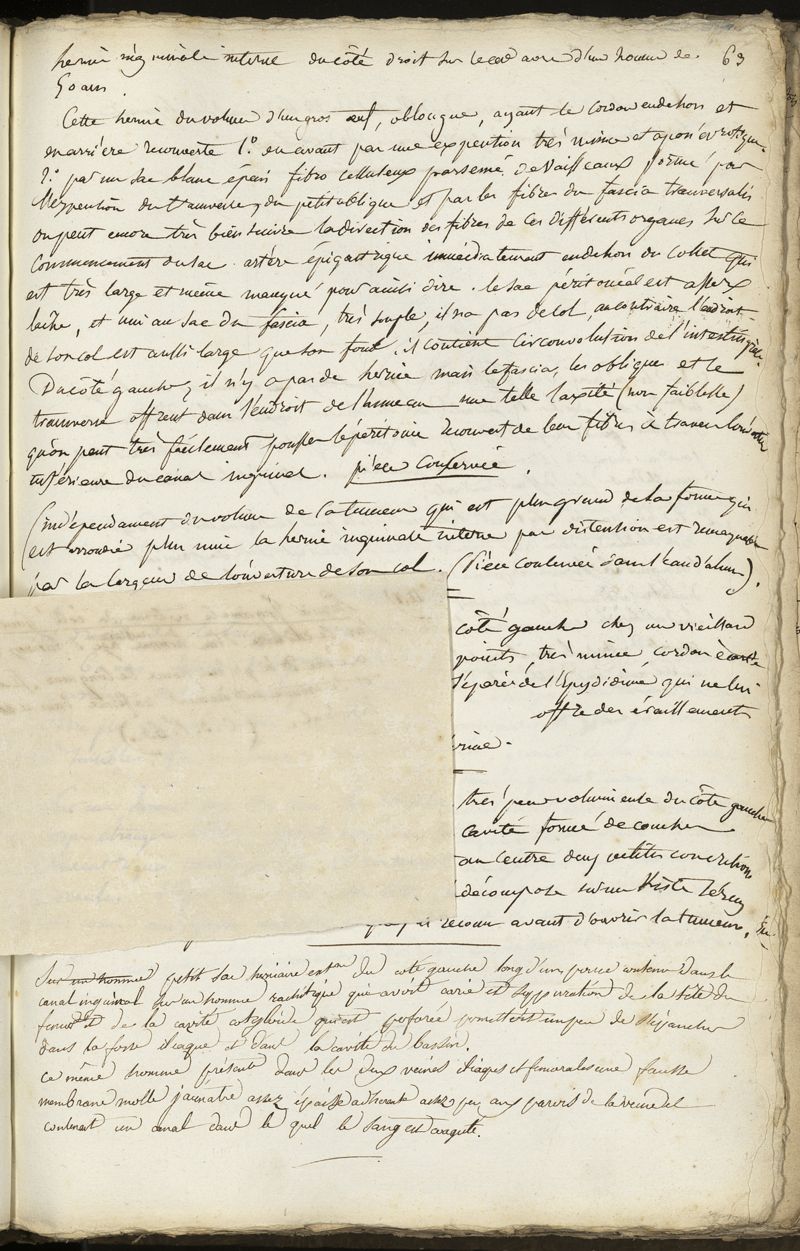 hernie inguinale interne du côté droit sur le cadavre d'un homme de 63
50 ans.
Cette hernie du volume d'un gros œuf, oblongue, ayant le cordon en dehors et
en arrière recouverte 1.° en avant par une expention très mince et aponévrotique
2.° par un sac blanc épais fibro celluleux parsemé de vaisseaux formé par
l'expention du transverse, du petit oblique et par les fibres du fascia transversalis
on peut encore très bien suivre la direction des fibres de ces différents organes sur le
commencement du sac. artère épigastrique immédiatement en dehors du collet qui
est très large et même manque pour ainsi dire. le sac péritonéal est assez
lache, et uni au sac du fascia, très souple, il n'a pas de col, au contraire l'endroit
de son col est aussi large que son fond. il contient circonvolution de l'intestin grêle.
Du côté gauche, il n'y a pas de hernie mais le fascia, les obliques et le
transverse offrent dans l'endroit de l'anneau une telle laxité (non faiblesse)
qu'on peut très facilement pousser le péritoine recouvert de leur fibres à travers l'ouverture
inférieure du canal inguinal. pièce conservée.
(indépendament du volume de la tumeur qui est plus grand de la forme qui
est arrondie plus unie la hernie inguinale interne par distention est remarquable
par la largeur de l'ouverture de son col. (Pièce conservée dans l'eau d'alun).
côté gauche chez un vieillard
points, très mince, cordon
séparés de l'Epydidime qui ne lui
offre des éraillements
très peu volumineuse du côté gauche
cavité formé de couches
au centre deux petites concrétions
décomposé sur un Kiste séreux
reconnu avant d'ouvrir la tumeur.
Sur un homme petit sac herniaire ext.ne du coté gauche long d'un pouce contenu dans le
canal inguinal sur un homme rachitique qui avoit carie et suppuration de la tête du
femur et de la cavité cotyloide qui est perforée permettoit un peu de s'épancher
dans la fosse iliaque et dans la cavité du bassin.
ce même homme présente dans les deux veines iliaques et femorales une fausse
membrane molle jaunatre assez épaisse adherente assez peu aux parois de la veine et
contenant un canal dans le quel le sang est